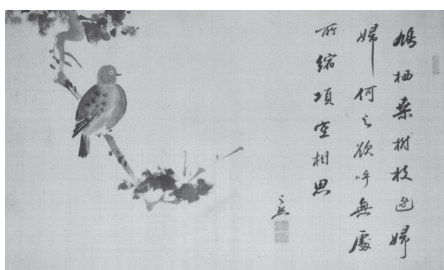 鳩栖桑樹枝逐婦
婦何之欲呼無處
所縮項空相思